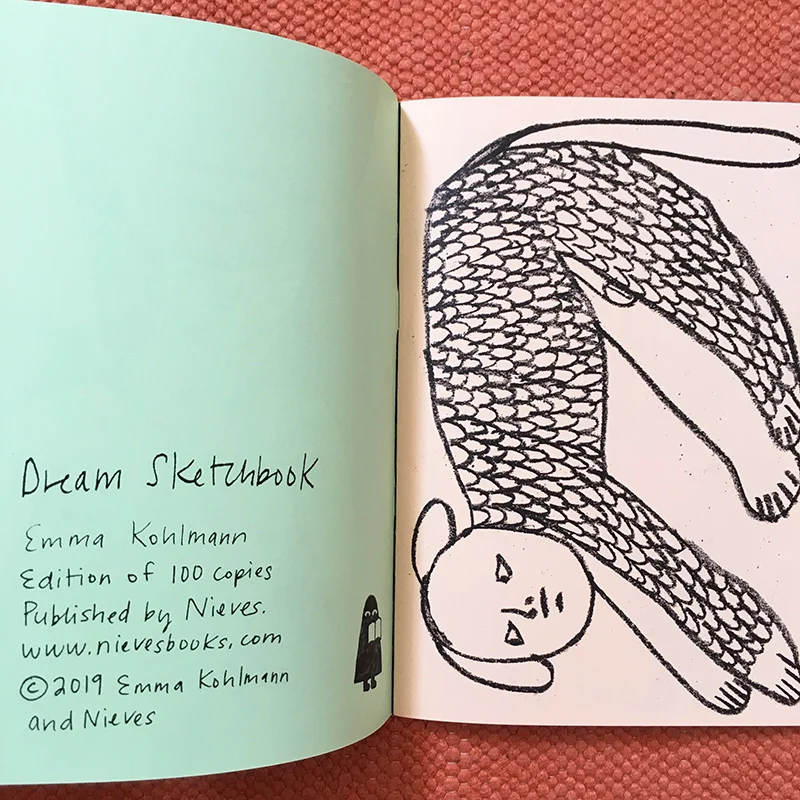 Dream Sketchbook
Emma Kohlmann
Edition of 100 copies
Published by Nieves.
www.nievesbooks.com
©2019 Emma Kohlmann
and Nieves